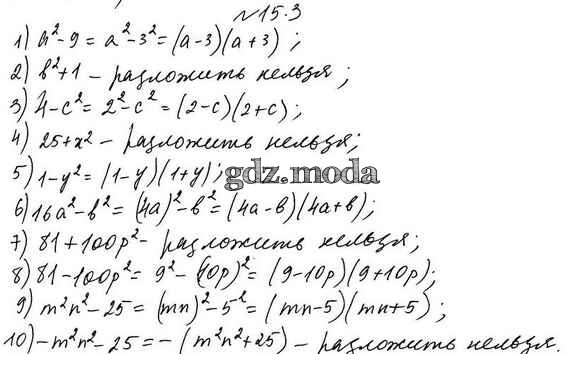 №15.3
1) a²-9 = a²-3² = (a-3)(a+3);
2) b²+1 - разложить нельзя;
3) 4-c² = 2²-c² = (2-c)(2+c);
4) 25+x² - разложить нельзя;
5) 1-y² = (1-y)(1+y);
gdz.moda
6) 16a²-b² = (4a)²-b² = (4a-b)(4a+b);
7) 81+100p² - разложить нельзя;
8) 81-100p² = 9²-(10p)² = (9-10p)(9+10p);
9) m²n²-25 = (mn)²-5² = (mn-5)(mn+5);
10) -m²n²-25 = -(m²n²+25) - разложить нельзя.